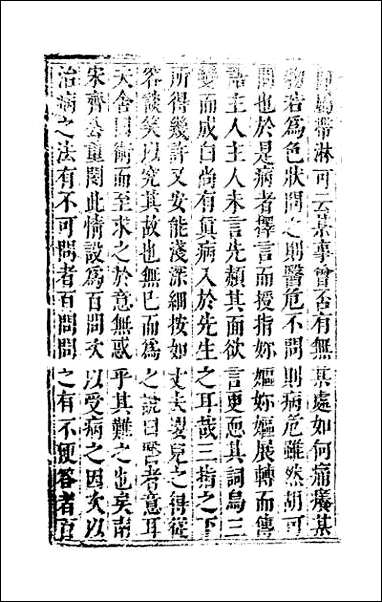 崩漏帶淋可云某事曾否有無某處如何痛癢某
物若為色狀問之則醫危不問則病危雖然胡可
問也於是病者擇言而授指妳嫗妳嫗展轉而傳
語主人主人未言先赬其面欲言更恧其詞烏三
變而成白尚有真病入於先生之耳哉三指之下
所得幾許又安能淺深細按如丈夫嬰兒之得從
容談笑以究其故也無已而為之說曰醫者意耳
夫舍曰術而至求之於意無惑乎其難之也矣南
宋齊公童閔此情設為百問欠以受病之因欠以
治病之法有不可問者百問問之有不便答者百